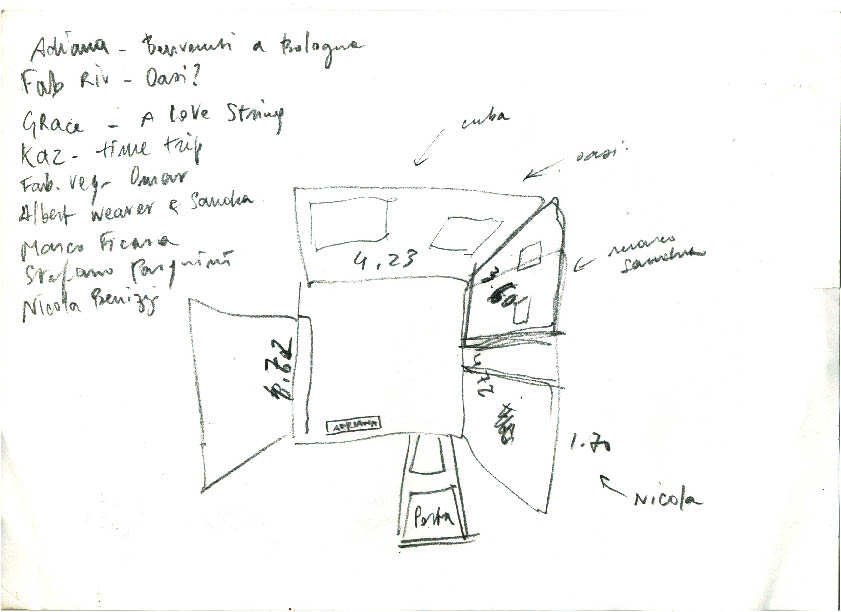 Adriana - Benvenuti a Bologna
Fab Riv - Oasi?
GRace - A Love String
Kaz - time trip
Fab. Veg - Omar
Albert wearer e Sandra
Marco Ficara
Stefano Pasquini
Nicola Benizzi
cuba
oasi
marco
sandra
4,23
3,60
4,72
ADRIANA
1.70
Nicola
Porta